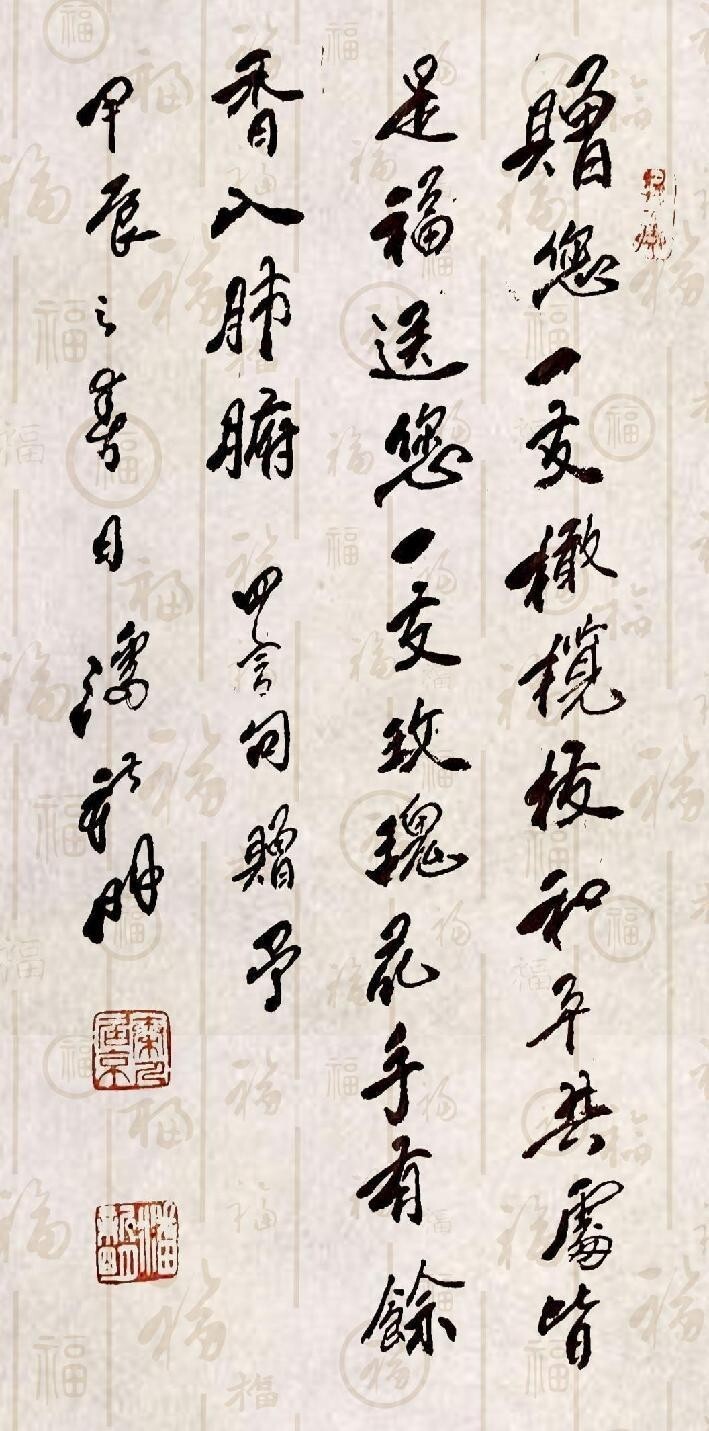 贈您一支橄欖枝和平共處皆
是福送您一支玫瑰花手有餘
香入肺腑 四言句贈予
甲辰之春日潘新明
潘新明